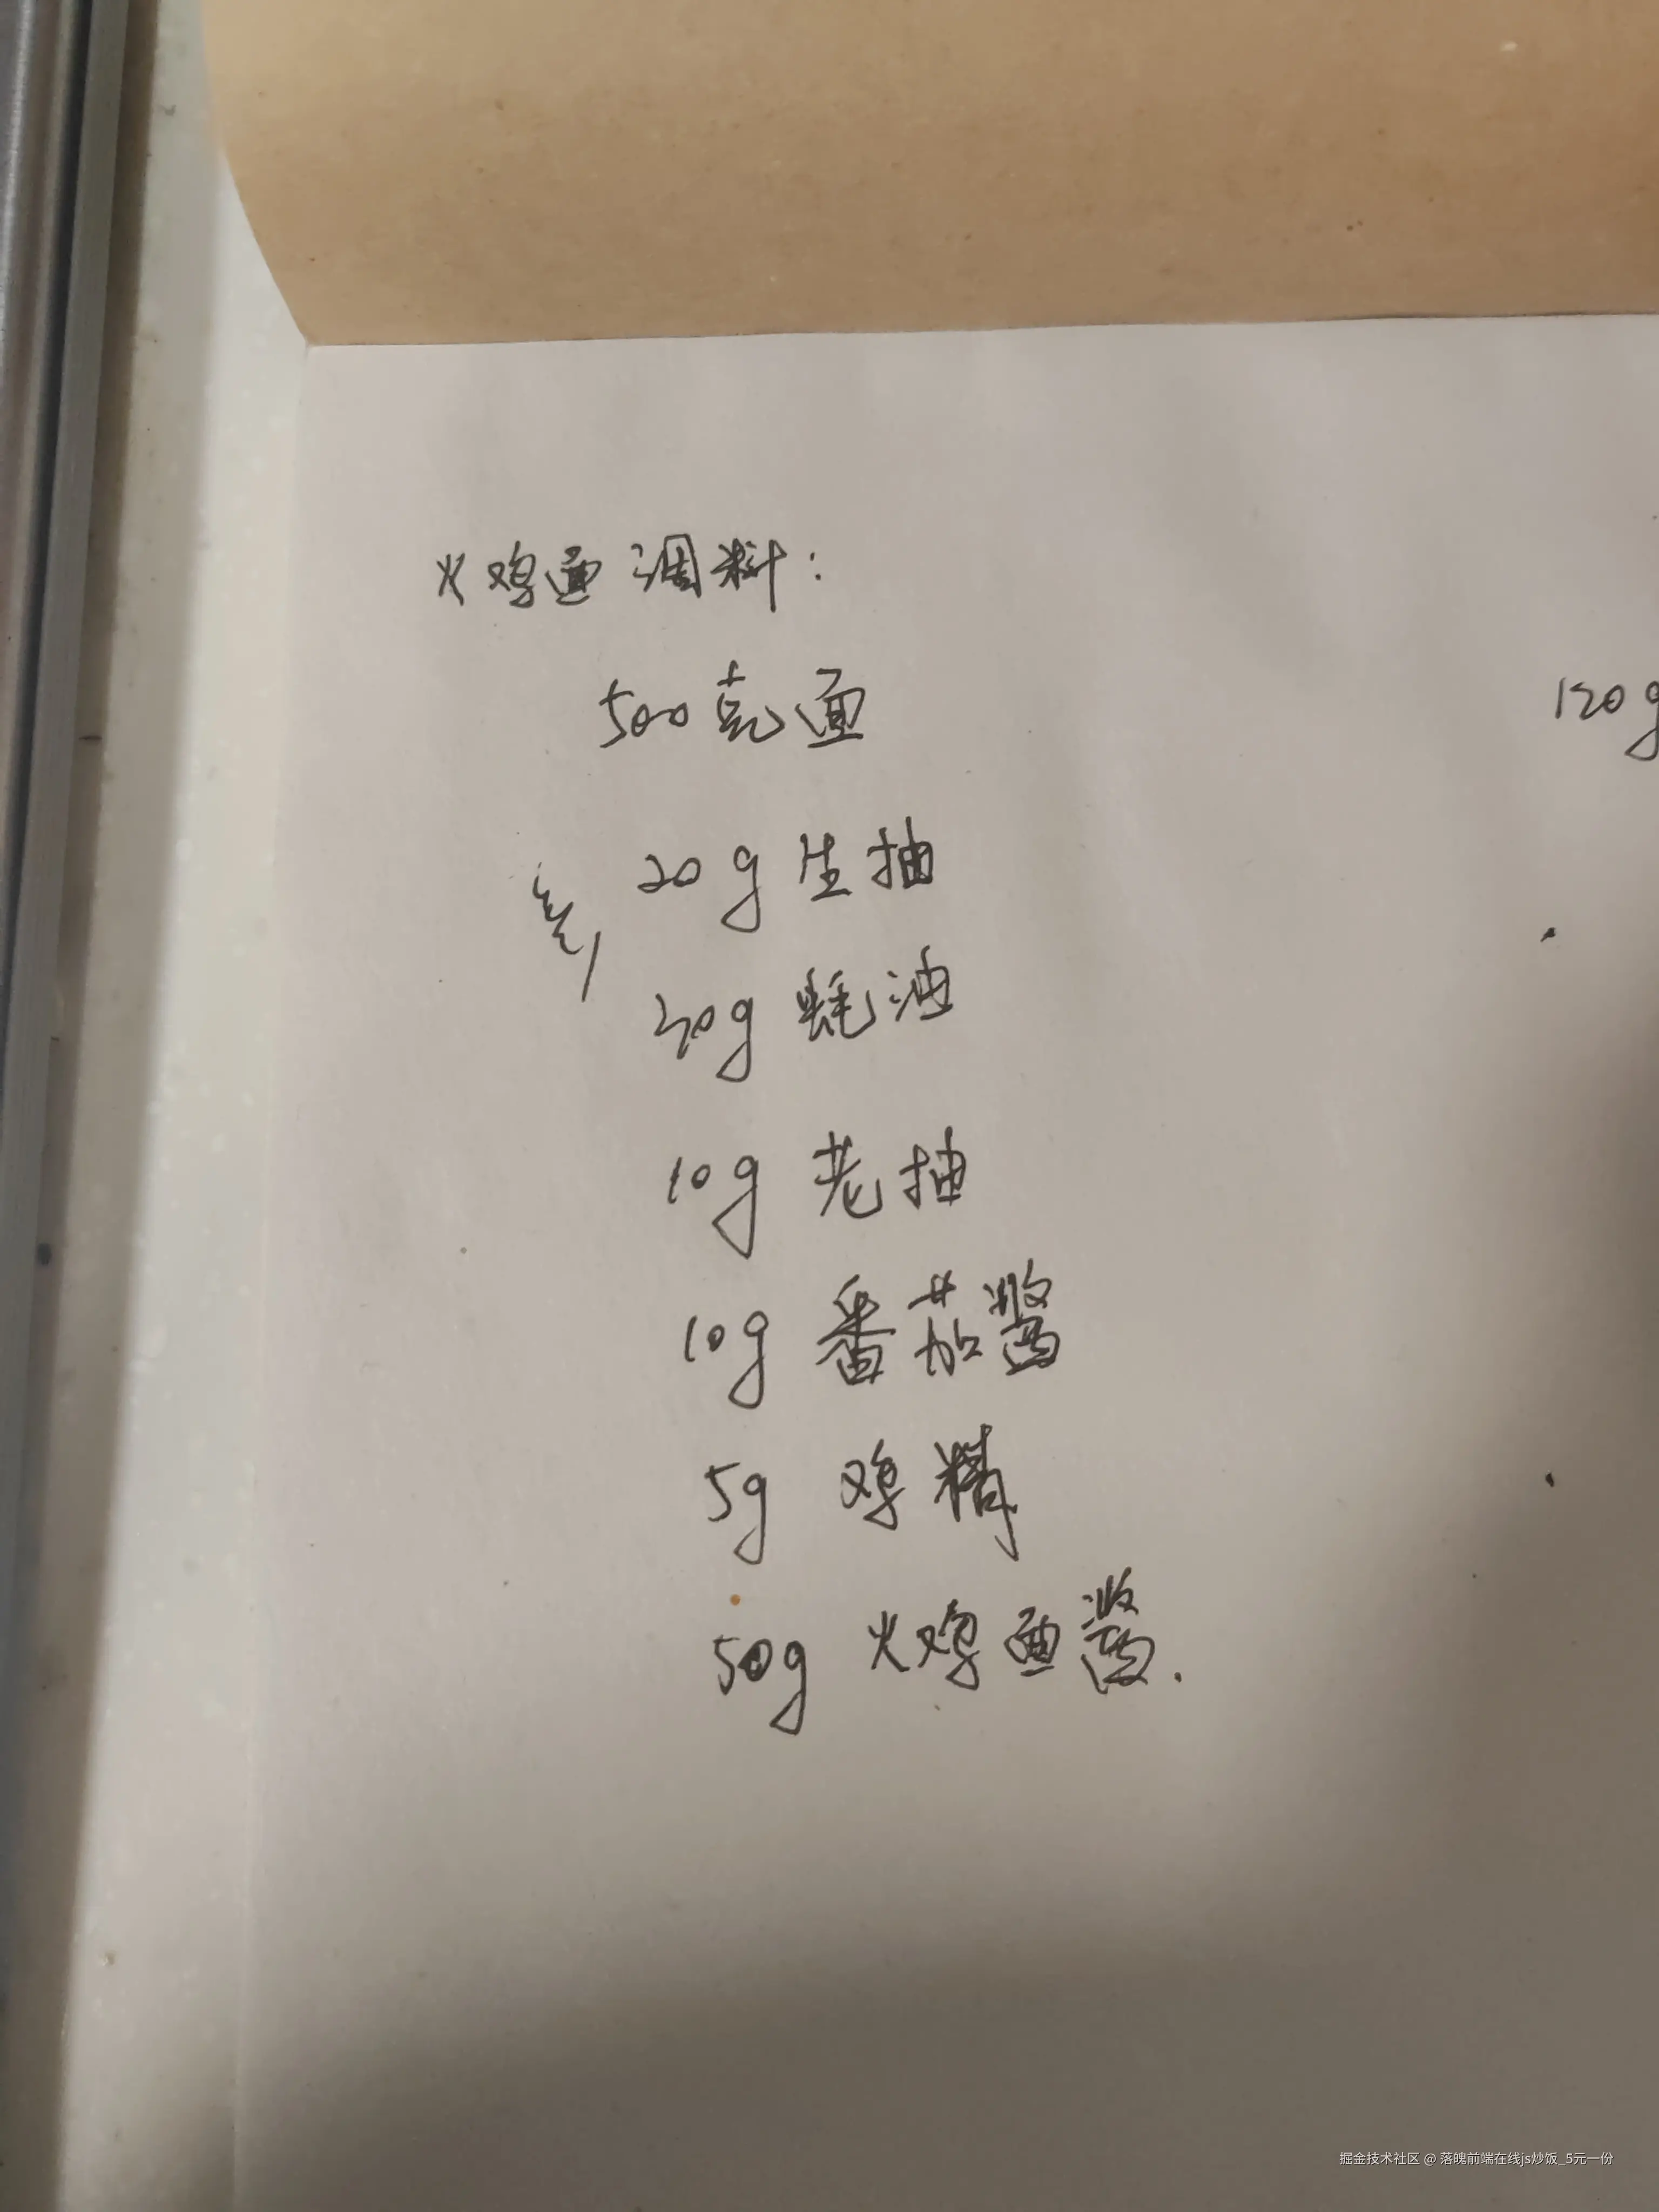 火鸡面调料:
500克面
120g
20g 生抽
20g 蚝油
10g 老抽
10g 番茄酱
5g 鸡精
50g 火鸡面酱.
掘金技术社区 @ 落魄前端在线js炒饭_5元一份